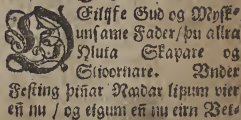 Eilijfe Gud og Mysk-
unsame Fader / þu allra
Hluta Skapare og
Stioornare. Vnder
Festing þinar Nꜳdar lifum vier
en̄ nu / og eigum en̄ nu eirn Vel-